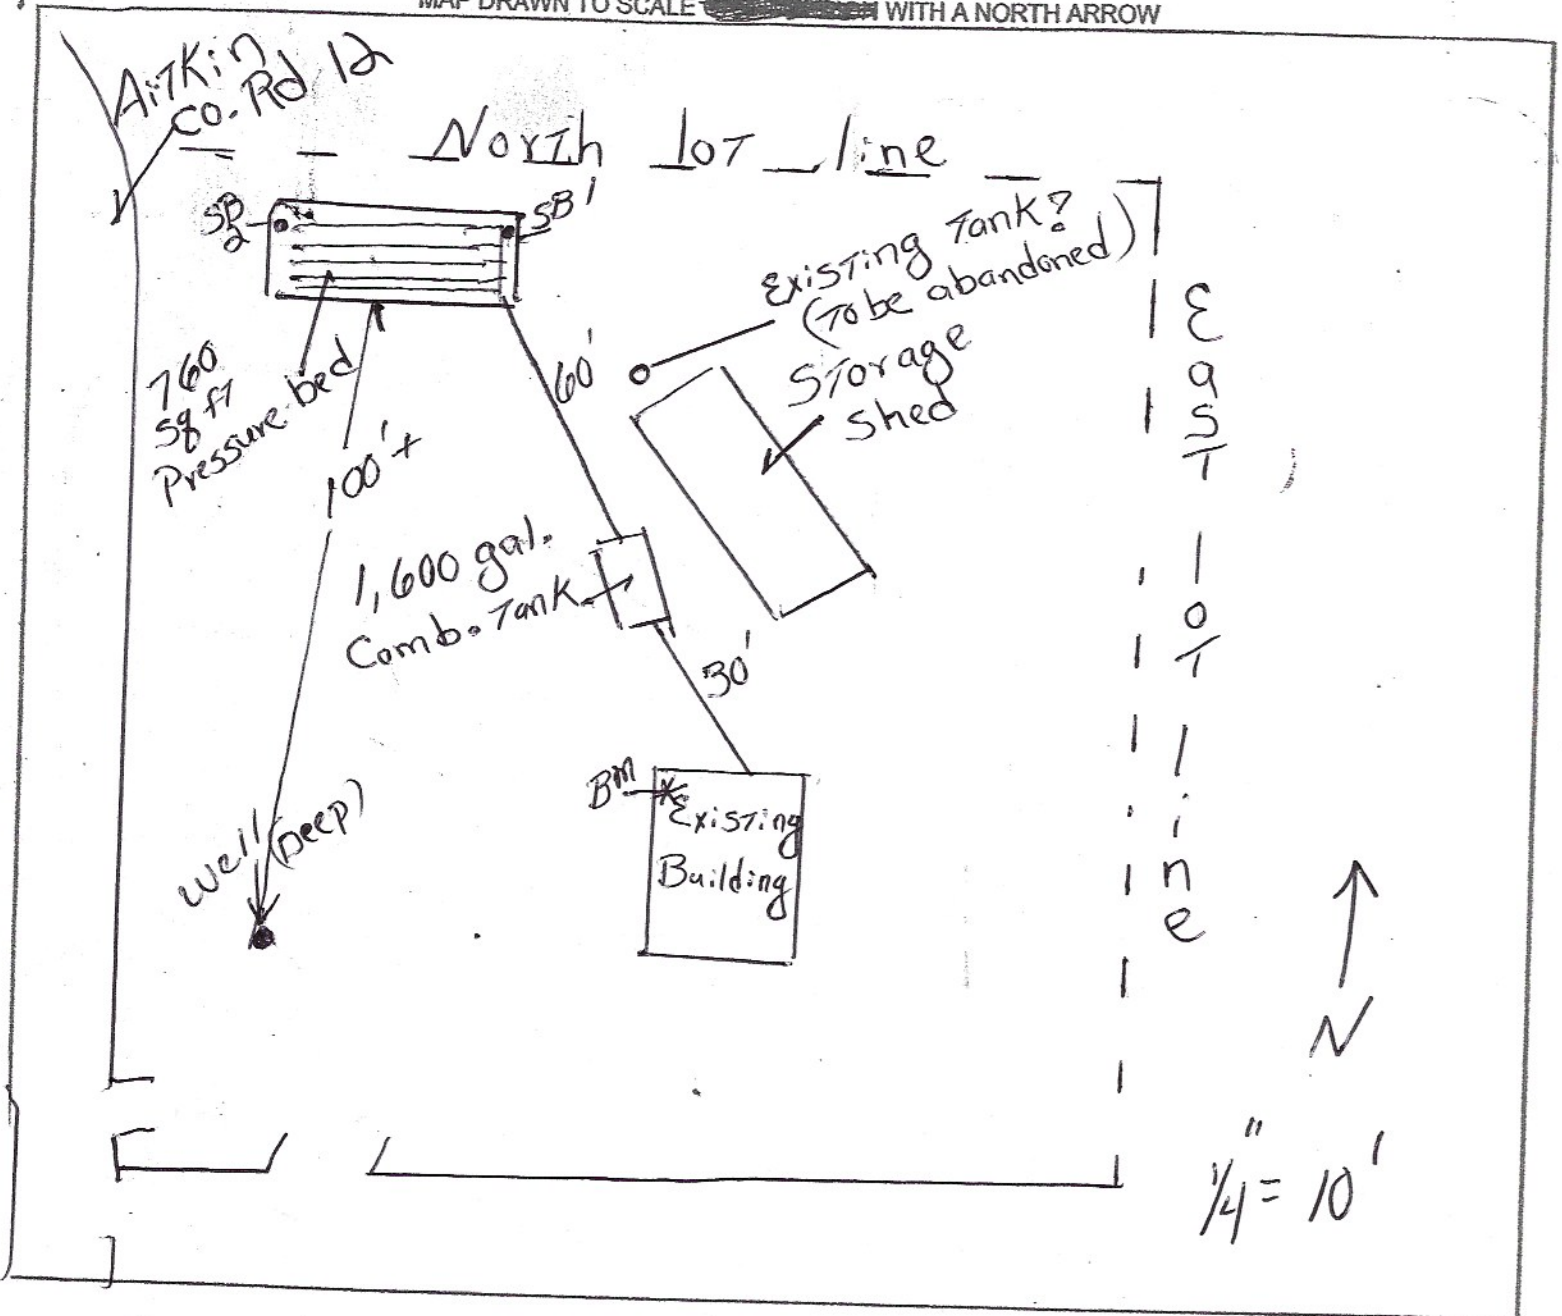 MAP DRAWN TO SCALE
WITH A NORTH ARROW
AiTKin
Co. Rd 12
North loT line
SB
2
SB 1
Existing Tank?
(To be abandoned)
Storage
Shed
East loT line
760
sq ft
Pressure bed
60'
100'+
1,600 gal.
Comb. Tank
30'
Well (Deep)
BM
Existing
Building
N
1/4" = 10'